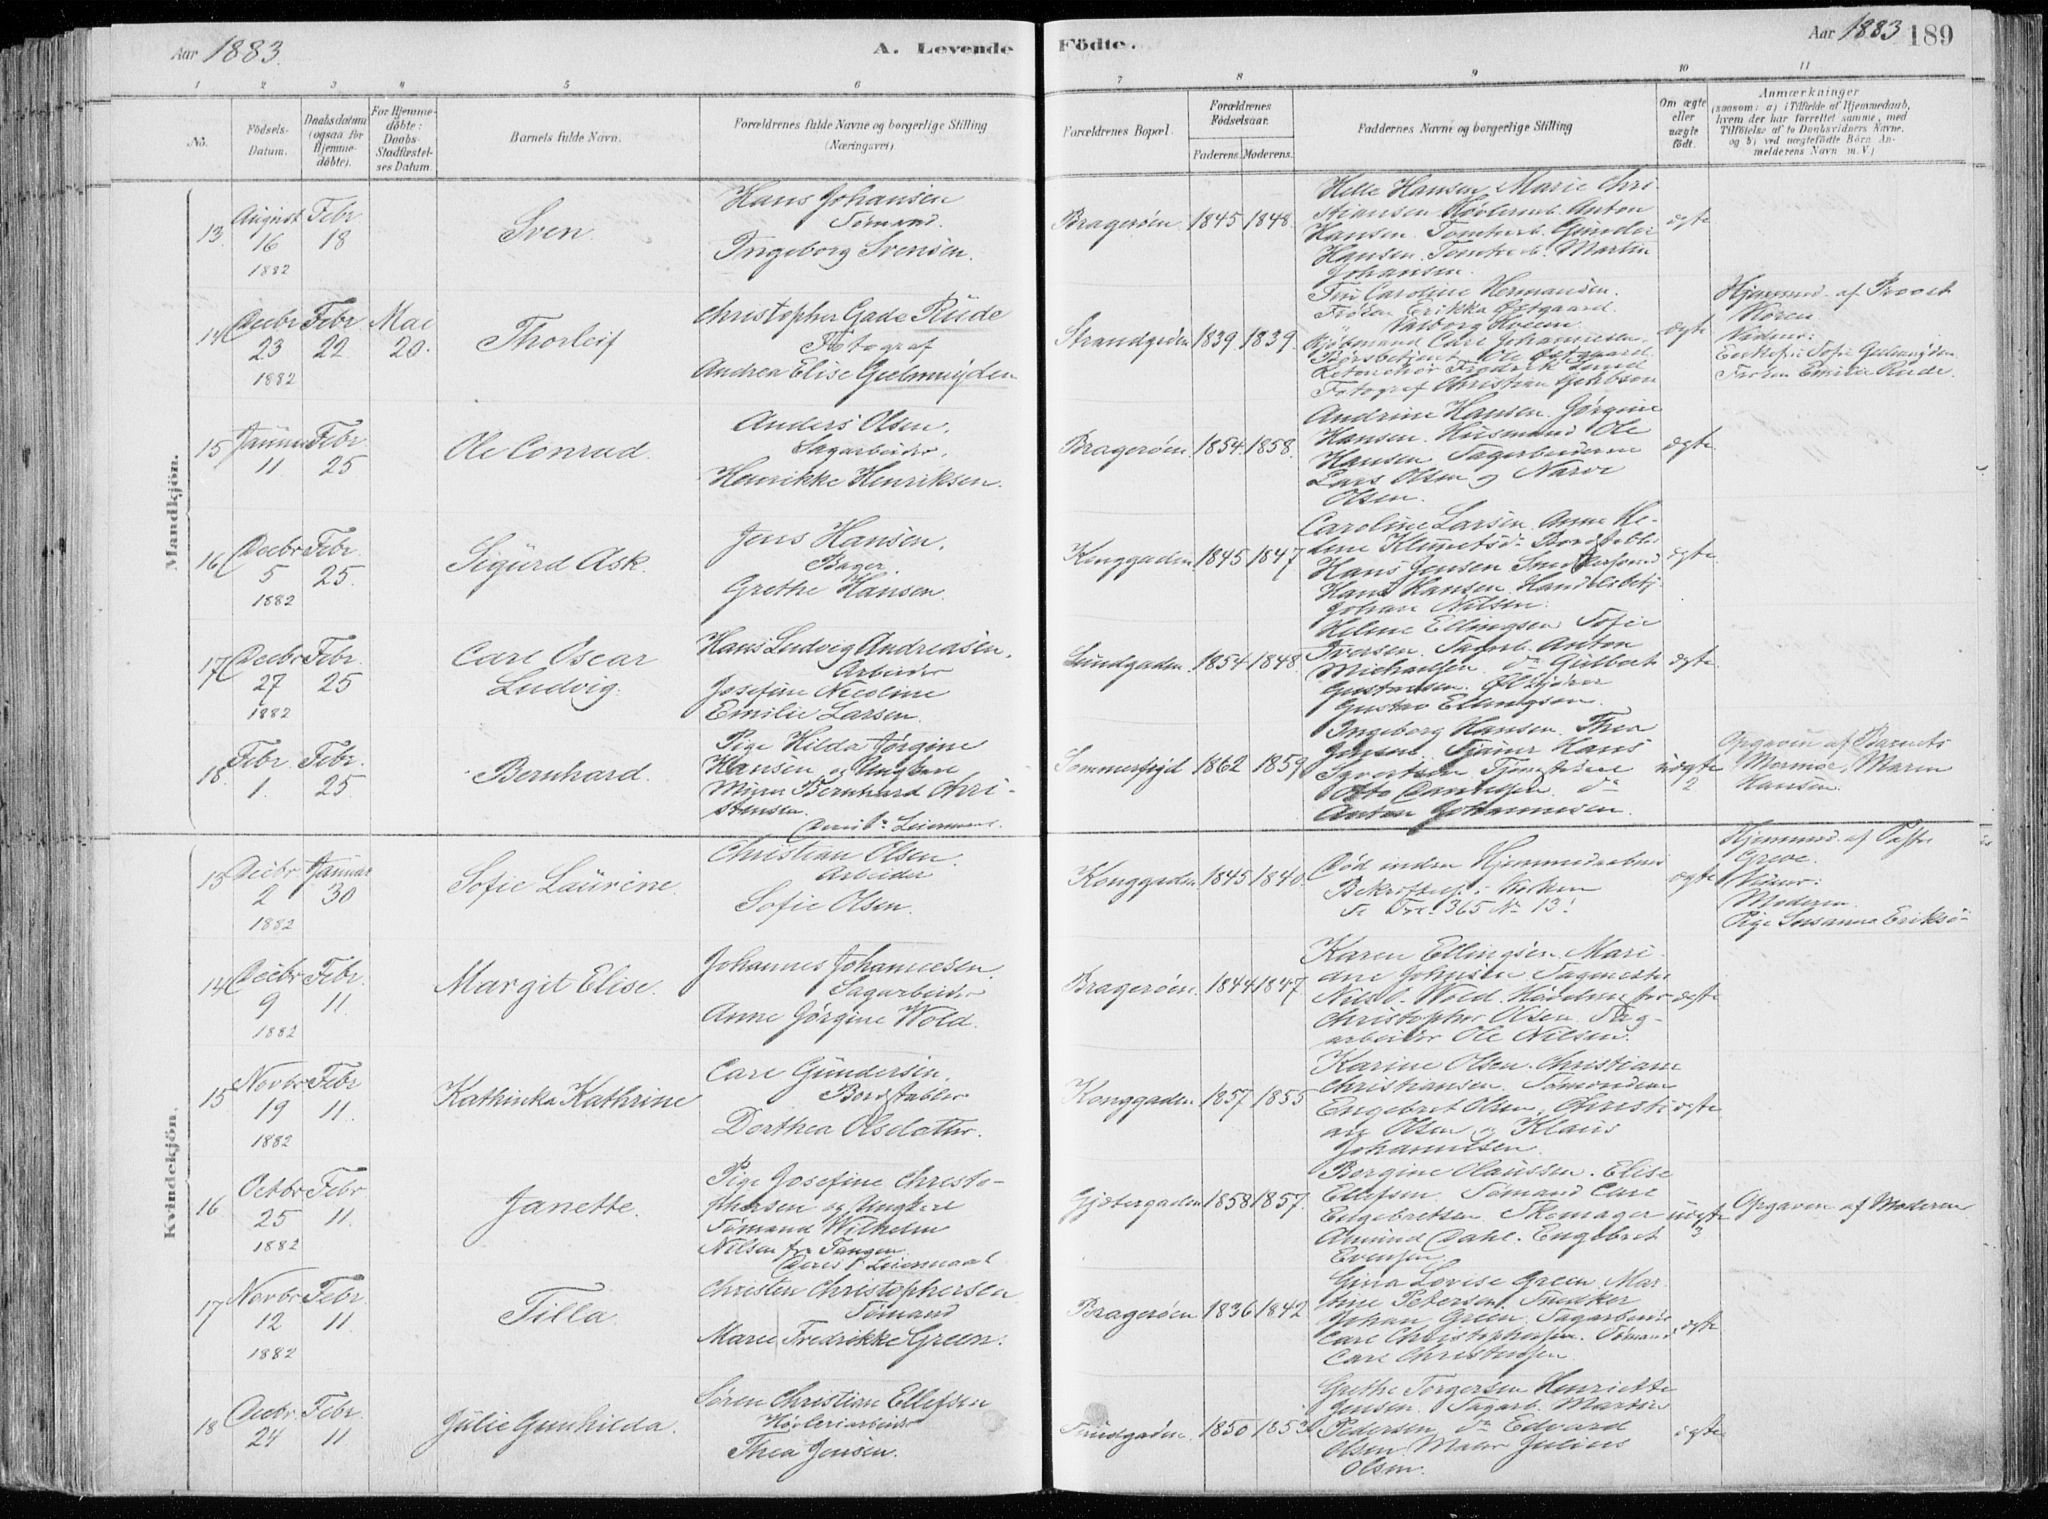 Aar 1883.
A. Levende Födte.
Aar 1883 189
1 2 3 4 5 6 7 8 9 10 11
No.
Födsels-Datum.
Daabsdatum (ogsaa for Hjemmedöbte).
For Hjemmedöbte: Daabs-Stadfæstelses Datum.
Barnets fulde Navn.
Forældrenes fulde Navne og borgerlige Stilling (Næringsvei).
Forældrenes Bopæl.
Forældrenes Födselsaar.
Faderens. Moderens.
Faddernes Navne og borgerlige Stilling
Om ægte eller uægte födt.
Anmærkninger
(saasom: a) i Tilfælde af Hjemmedaab, hvem der har forrettet samme, med Tilföielse af to Daabsvidners Navne, og b) ved uægtefödte Börn Anmelderens Navn m. V.)
Mandkjön.
13. August 16 1882
Febr 18
Sven.
Hans Johansen
Sømand.
Ingeborg Svensen.
Bragerøen. 1845 1848.
Helle Hansen, Marie Chri-
stiansen. Høvlermb. Anton
Hansen. Tomtearb. Gunder
Hansen. Tomtearb. Martin
Johansen.
ægte
14 Decbr 23 1882
Febr 22
Mai 20.
Thorleif
Christopher Gade Rude
Fotograf
Andrea Elise Geelmuyden
Strandgaden 1839. 1839.
Fru Caroline Hermansen.
Frøken Erikka Østgaard.
Valborg Hveem.
Kjøbmand Carl Johannesen.
Børsbetjent Ole Østgaard.
Retouchør Fredrik Lund
Fotograf Christian Jakobsen
ægte
Hjemmed. af Provst
Hören
Vidner:
Enkefru Sofie Geelmuyden
Frøken Emilie Rude.
15 Januar 11
Febr. 25
Ole Conrad.
Anders Olsen.
Sagarbeider.
Henrikke Henriksen.
Bragerøen. 1854. 1858.
Andrine Hansen. Jørgine
Hansen. Husmand Ole
Hansen Sagarbeiderne
Lars Olsen og Narve
Olsen.
ægte.
16 Decbr 5 1882
Febr. 25.
Sigurd Ask.
Jens Hansen.
Bager.
Grethe Hansen.
Konggaden 1845 1847
Caroline Larsen. Anne He-
lene Klemetsdr. Bordstabler
Hans Jensen
Hans Hansen. Handelsbetj.
Johan Nilsen.
ægte.
17 Decbr 27 1882
Febr. 25
Carl Oscar
Ludvig.
Hans Ludvig Andreasen.
Arbeider
Josefine Nicoline
Emilie Larsen.
Lundgaden. 1854 1848
Helene Ellingsen. Sofie
Iversen. Sagarb. Anton
Michaelsen. do Gulbert
Gustavsen.
Gustav Ellingsen.
ægte.
18. Febr. 1.
Febr. 25.
Bernhard.
Pige Hilda Jørgine
Hansen og Ungkarl
Bernhard Chri-
stensen.
Leiermaal.
Sommerfryd 1862 1859
Ingeborg Hansen. Thea
Jensen. Hans
Syvertsen.
Otto Danielsen. do
Anton Johannesen
uægte
2
Opgaven af Barnets
Mormor, Maren
Hansen.
Kvindekjön.
13 Decbr 2 1882
Januar 30
Sofie Laurine.
Christian Olsen.
Arbeider
Sofie Olsen.
Konggaden 1845 1840.
Død inden Hjemmedaabens
Bekræftelse i Kirken
Se Fol. 365 No 13.
ægte
Hjemmed. af Pastor
Greve.
Vidner:
Moderen.
Pige Susanna Eriksø
14 Decbr 9 1882
Febr. 11.
Margit Elise.
Johannes Johannesen.
Sagarbeider
Anne Jørgine Wold.
Bragerøen. 1844 1847
Karen Ellingsen. Mari-
ane Johnsen Sagmester
Nils O. Wold.
Christopher Olsen. Sag-
arbeider Ole Nilsen.
ægte
15 Novbr 19 1882
Febr 11.
Kathinka Kathrine
Carl Gundersen.
Bordstabler
Dorthea Olsdatter.
Konggaden 1857 1855
Karine Olsen. Christiane
Christiansen. Sømændene
Engebret Olsen, Christi-
an Olsen og Klaus
Johannesen.
ægte
16 Octbr 25 1882
Febr 11.
Janette.
Pige Josefine Christo-
phersen og Ungkarl
Sømand Wilhelm
Nilsen fra Tangen.
Deres 1. Leiermaal
Gjetergaden 1858 1857.
Borgine Claussen. Elise
Ellefsen. Sømand Carl
Engebretsen Skomager
Amund Dahl. Engebret
Evensen
uægte
3
Opgaven af Moderen
17 Novbr 12 1882
Febr. 11.
Tilla.
Christen Christophersen
Sømand
Marie Fredrikke Green.
Bragerøen 1836 1842
Gina Lovise Green Mar-
tine Petersen. Snedker
Johan Green. Sagarbeider
Carl Christophersen. Sømand
Carl Christensen
ægte
18 Decbr. 24
Febr. 11.
Julie Gunhilda.
Søren Christian Ellefsen
Høvleriarbeider
Thea Jensen.
1850
Grethe Torgersen Henriette
Jensen. Sagarb. Martin
Pedersen do Edvard
Olsen Maler Julius
Olsen.
ægte